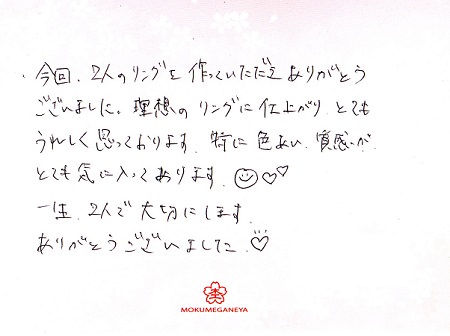 今回、2人のリングを作っていただき ありがとう
ございました。理想の リングに仕上がり、とても
うれしく思っております。特に 色あい、質感が、
とても 気に入っております。
一生、2人で 大切にします。
ありがとうございました。
MOKUMEGANEYA